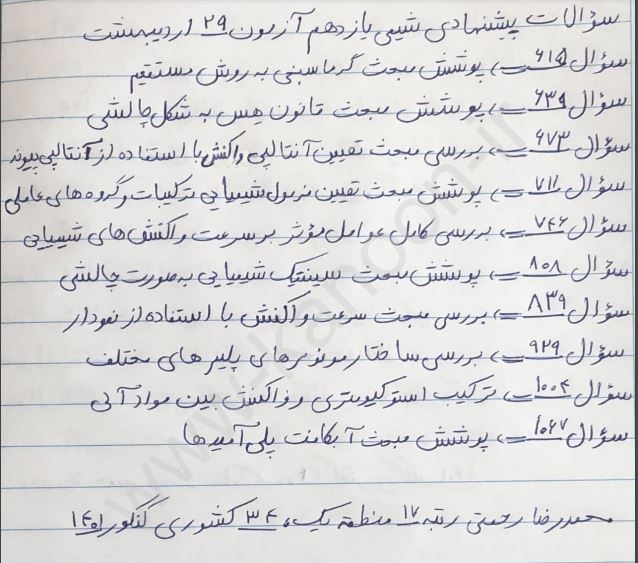 سؤالات پیشنهادی شیمی یازدهم آزمون ۲۹ اردیبهشت
سؤال ۶۱۵ ⇐ پوشش مبحث گرماسنجی به روش مستقیم
سؤال ۶۳۹ ⇐ پوشش مبحث قانون هس به شکل چالشی
سؤال ۶۷۳ ⇐ بررسی مبحث تعیین آنتالپی واکنش با استفاده از آنتالپی پیوند
سؤال ۷۱۱ ⇐ پوشش مبحث تعیین فرمول شیمیایی ترکیبات و گروه های عاملی
سؤال ۷۴۶ ⇐ بررسی کامل عوامل مؤثر بر سرعت واکنش های شیمیایی
سؤال ۸۰۸ ⇐ پوشش مبحث سینتیک شیمیایی به صورت چالشی
سؤال ۸۳۹ ⇐ بررسی مبحث سرعت واکنش با استفاده از نمودار
سؤال ۹۲۹ ⇐ بررسی ساختار مونومرهای پلیمرهای مختلف
سؤال ۱۰۰۴ ⇐ ترکیب استوکیومتری و واکنش بین مواد آلی
سؤال ۱۰۶۷ ⇐ پوشش مبحث آبکافت پلی آمیدها
محمدرضا رحمتی رتبه ۱۷ منطقه یک، ۳۴ کشوری کنکور ۱۴۰۱
www.kanoon.ir